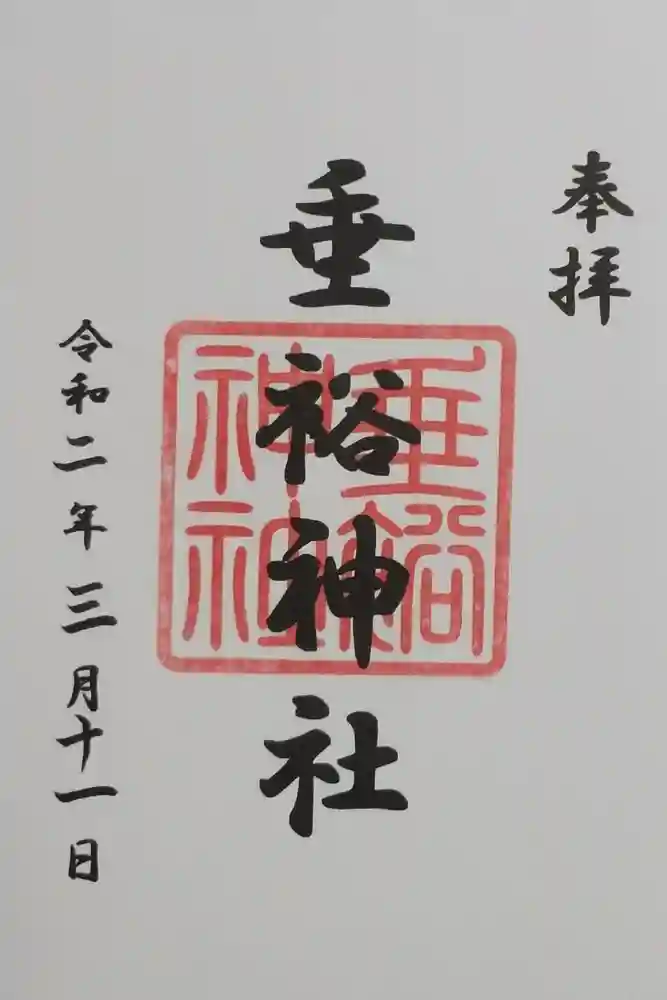 奉拝
垂裕神社
垂裕神社
令和二年三月十一日